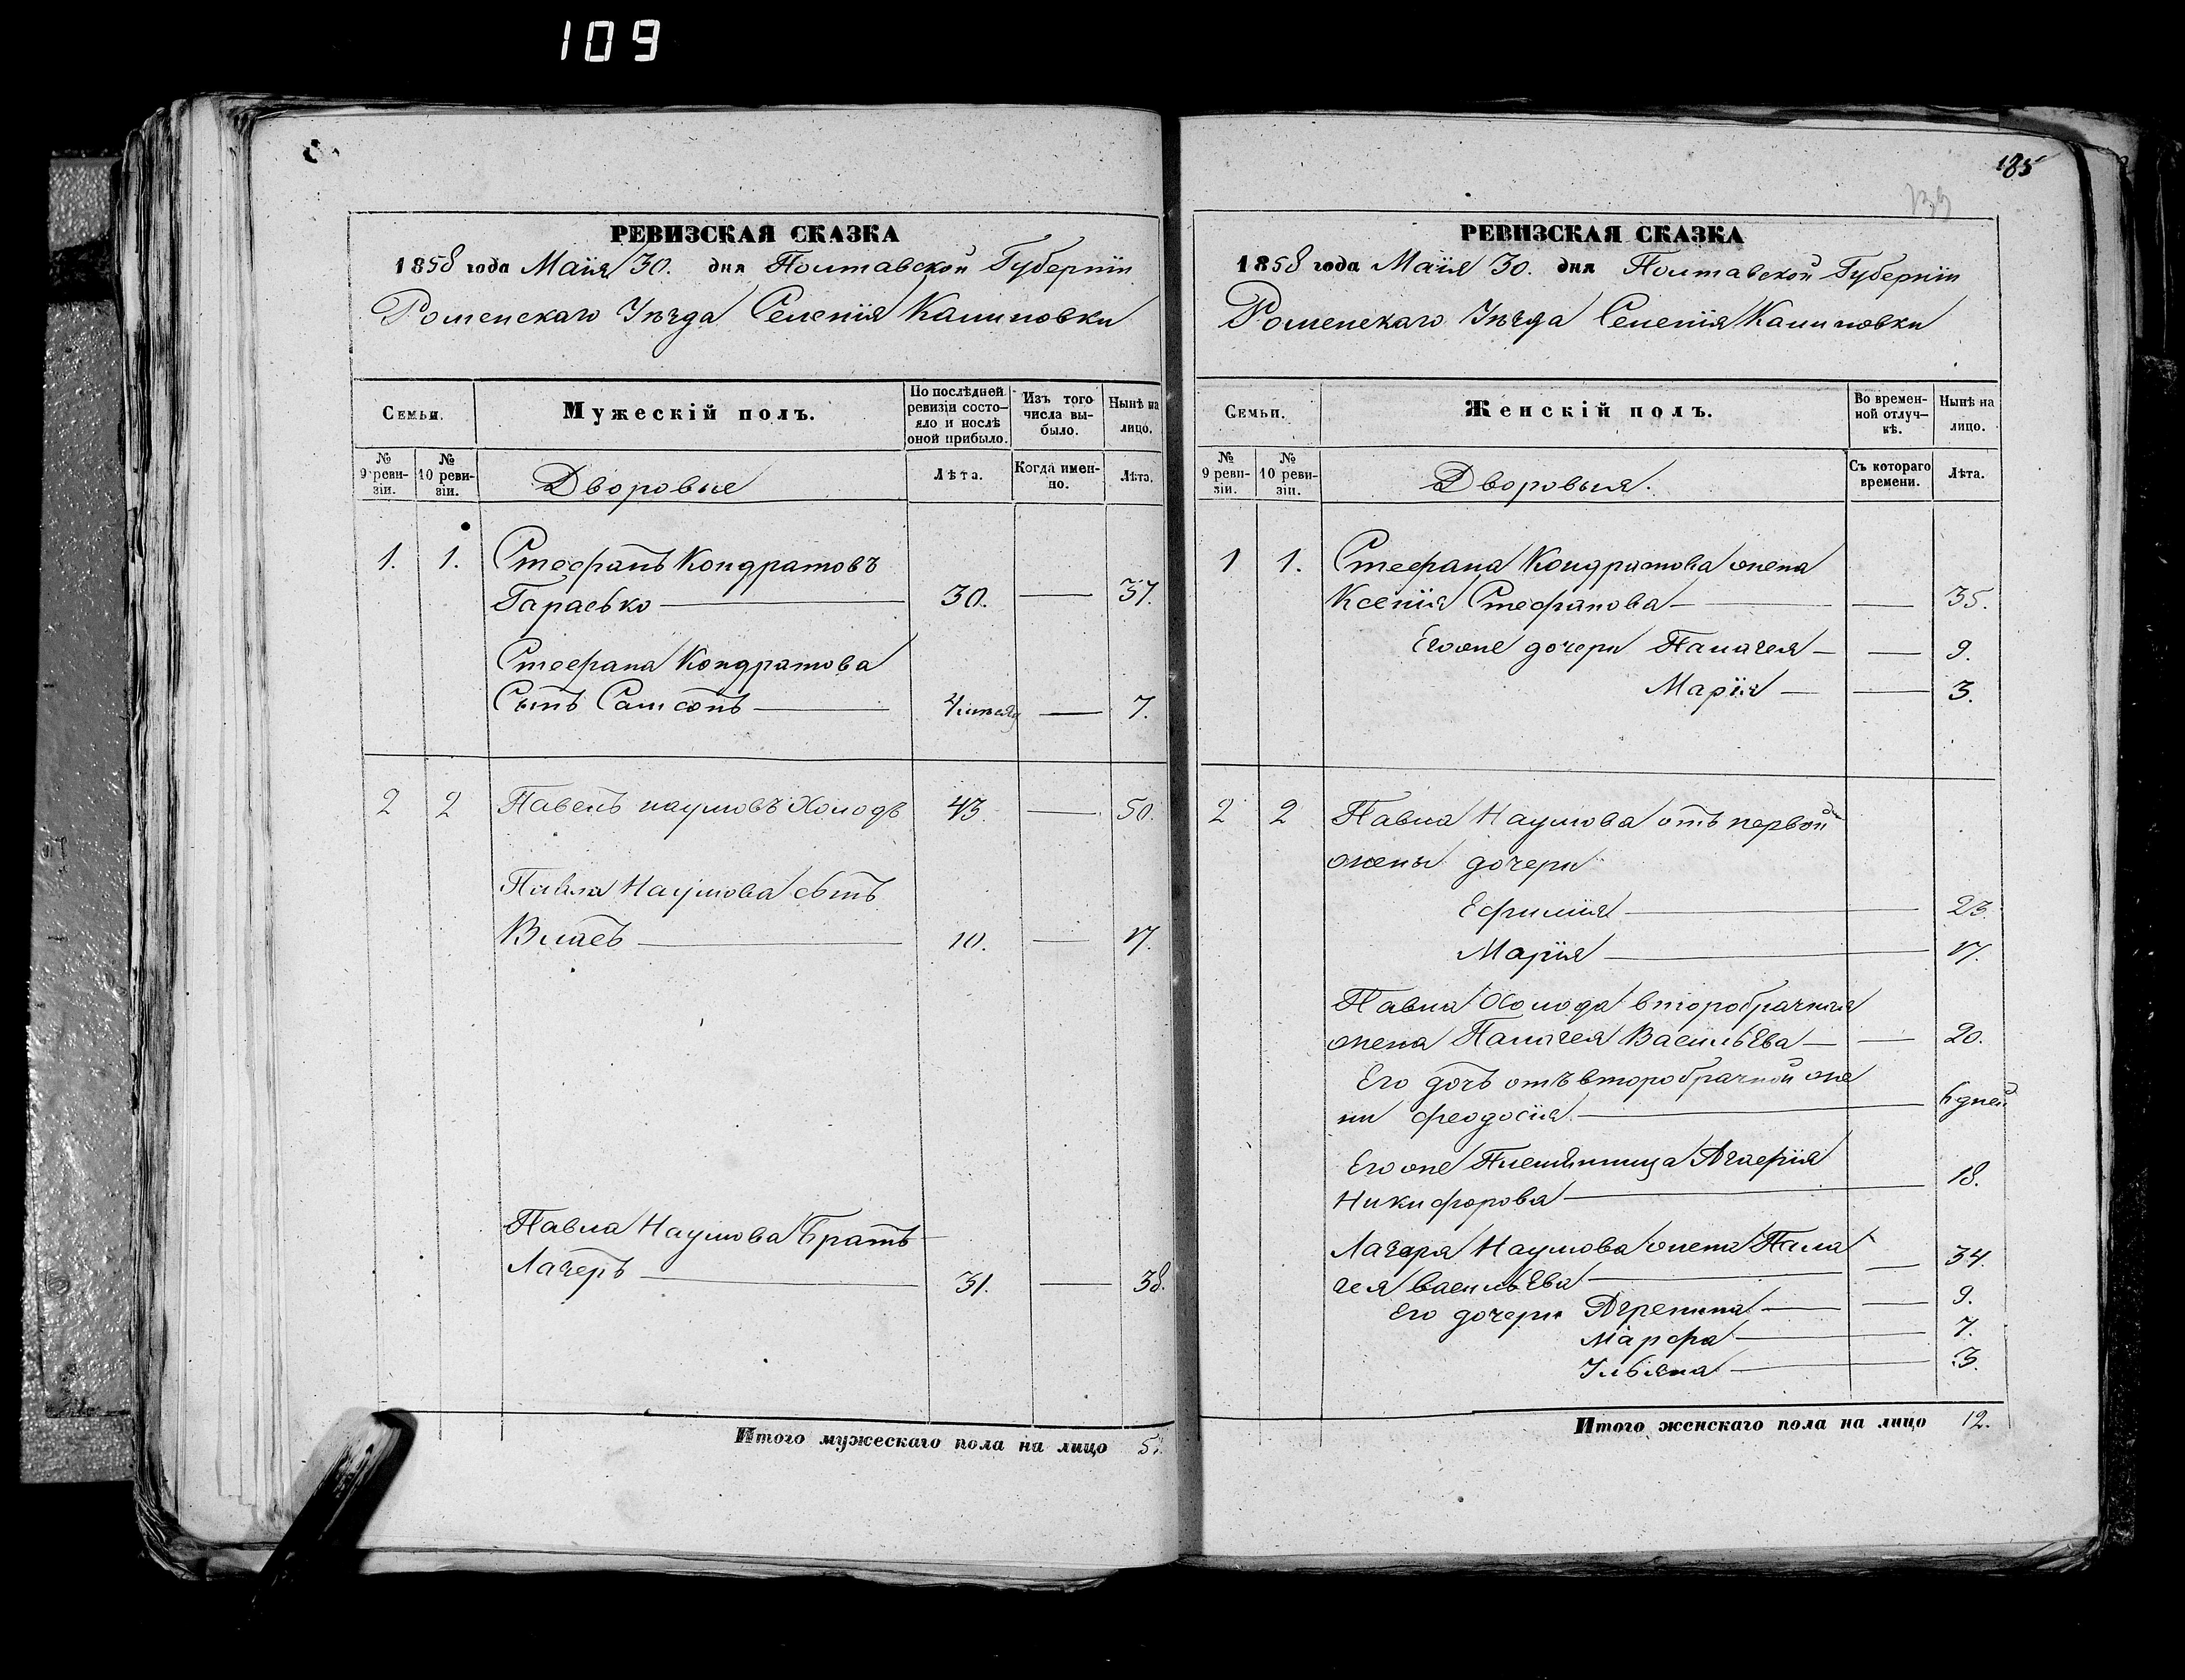 109
РЕВИЗСКАЯ СКАЗКА
1858 года Маія 30. дня Полтавской Губерніи
Роменскаго Уѣзда Селенія Калиновки
Семьи.
Мужескій полъ.
По послѣдней ревизіи состо-
яло и послѣ
оной прибыло.
Изъ того
числа вы-
было.
Нынѣ на
лицо.
№
9 реви-
зіи.
№
10 реви-
зіи.
Дворовые
Лѣта.
Когда имен-
но.
Лѣта.
1. 1. Стефанъ Кондратовъ
Гарасько — 30. — 37.
Стефана Кондратова
Сынъ Самсонъ — 4 — 7.
2 2 Павелъ Наумовъ Холодъ 43. — 50.
Павла Наумова сынъ
Власъ — 10. — 17.
Павла Наумова Братъ
Лазеръ — 31. — 38.
Итого мужескаго пола на лицо 5.
185
РЕВИЗСКАЯ СКАЗКА
1858 года Маія 30. дня Полтавской Губерніи
Роменскаго Уѣзда Селенія Калиновки
Семьи.
Женскій полъ.
Во времен-
ной отлуч-
кѣ.
Нынѣ на
лицо.
№
9 реви-
зіи.
№
10 реви-
зіи.
Дворовыя.
Съ котораго
времени.
Лѣта.
1 1. Стефана Кондратова жена
Ксенія Стефанова — — 35.
Егоже дочери Палагея — — 9.
Марія — — 3.
2 2 Павла Наумова отъ первой
жены дочери
Ефимія — 23.
Марія — 17.
Павла Холода второбрачная
жена Палагея Васильева — — 20.
Его дочь отъ второбрачной же
ны Феодосія — 6 дней
Егоже Племянница Агафія
Никифорова — 18.
Лазаря Наумова жена Пала
гея Васильева — — 34.
Его дочери Агрепина — — 9.
Марфа — 7.
Ульяна — 3.
Итого женскаго пола на лицо 12.